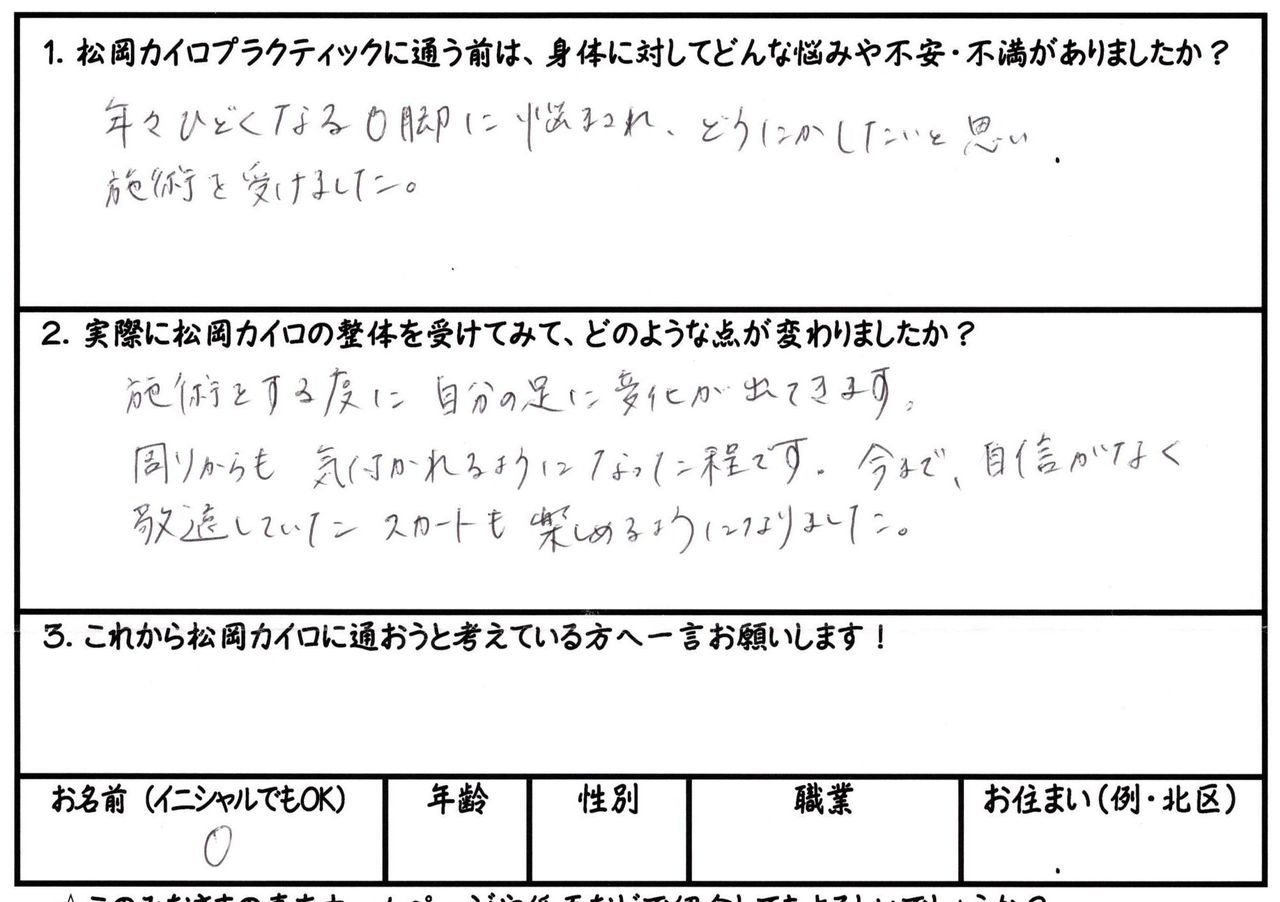 1. 松岡カイロプラクティックに通う前は、身体に対してどんな悩みや不安・不満がありましたか？
年々ひどくなるO脚に悩まされ、どうにかしたいと思い
施術を受けました。
2. 実際に松岡カイロの整体を受けてみて、どのような点が変わりましたか？
施術をする度に自分の足に変化が出てきます。
周りからも気付かれるようになった程です。今まで、自信がなく
敬遠していたスカートも楽しめるようになりました。
3. これから松岡カイロに通おうと考えている方へ一言お願いします！
お名前（イニシャルでもOK） 年齢 性別 職業 お住まい（例・北区）
O